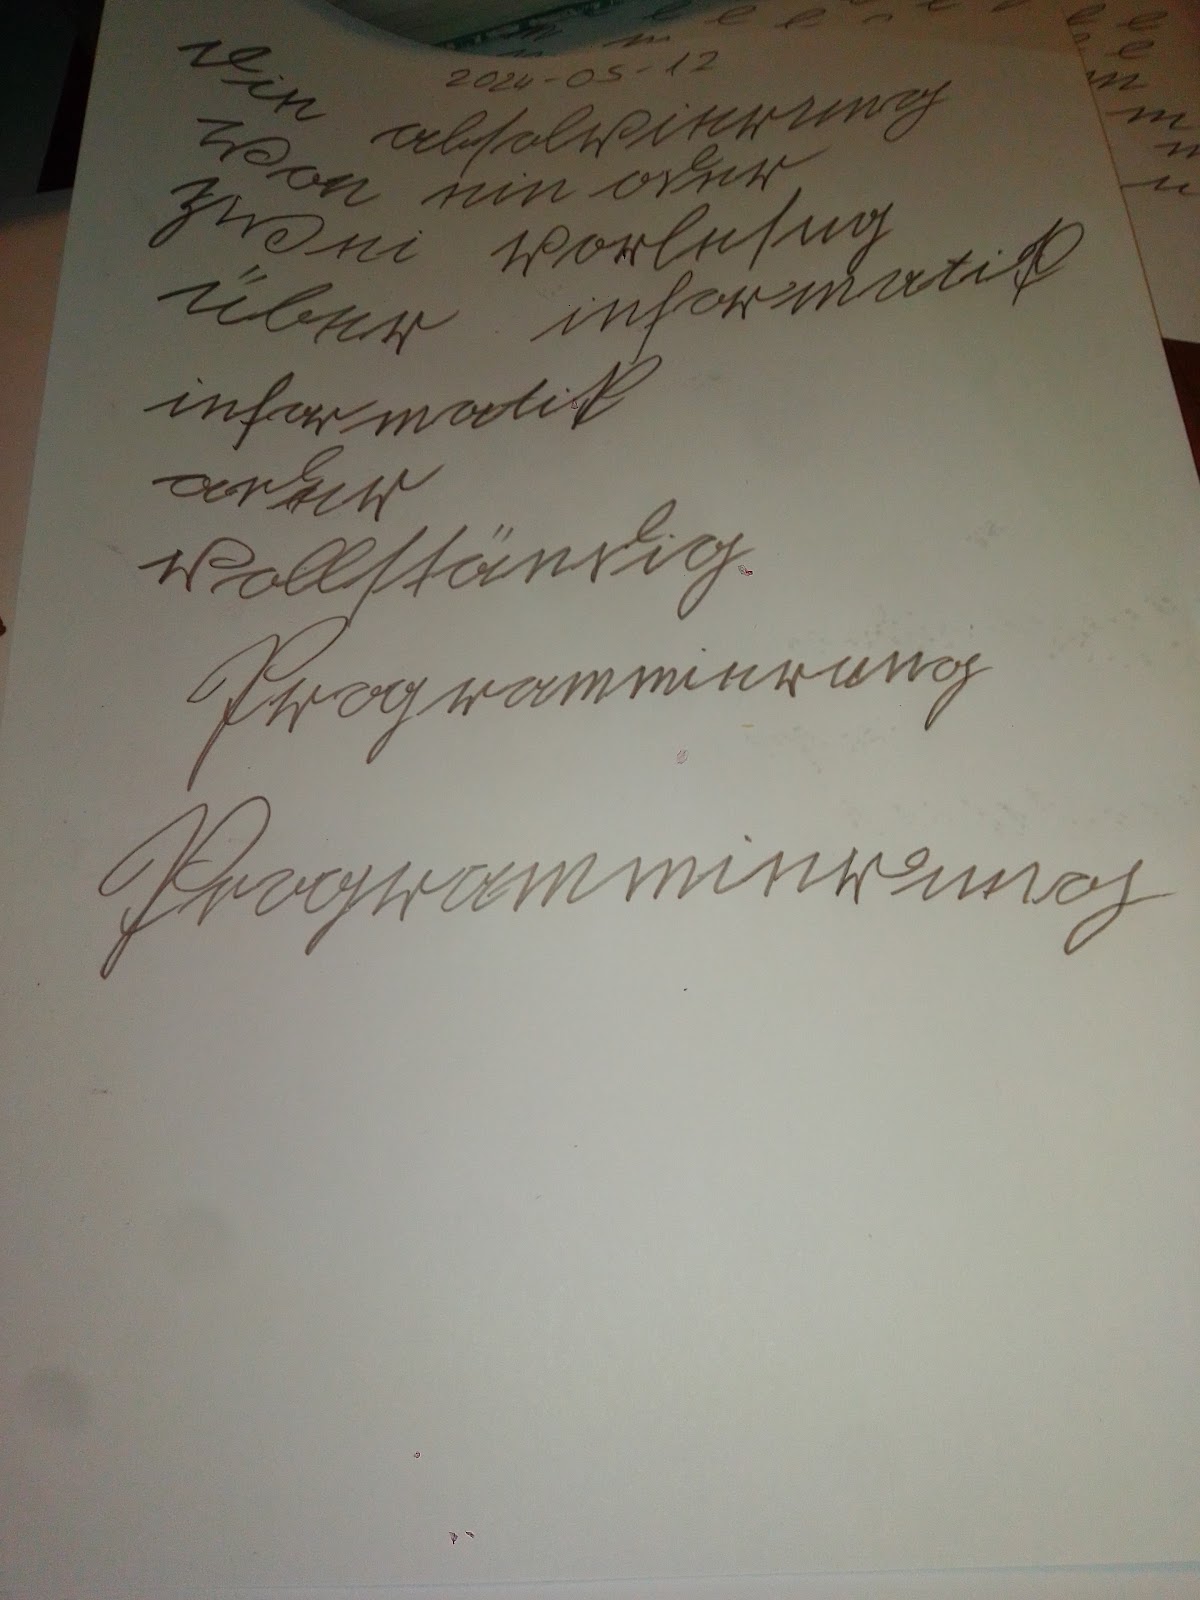 2024-05-12
Die absolwierung
von ein oder
zwei vorlesug
über informatik
informatik
oder
vollständig.
Programmierung
Programmierung